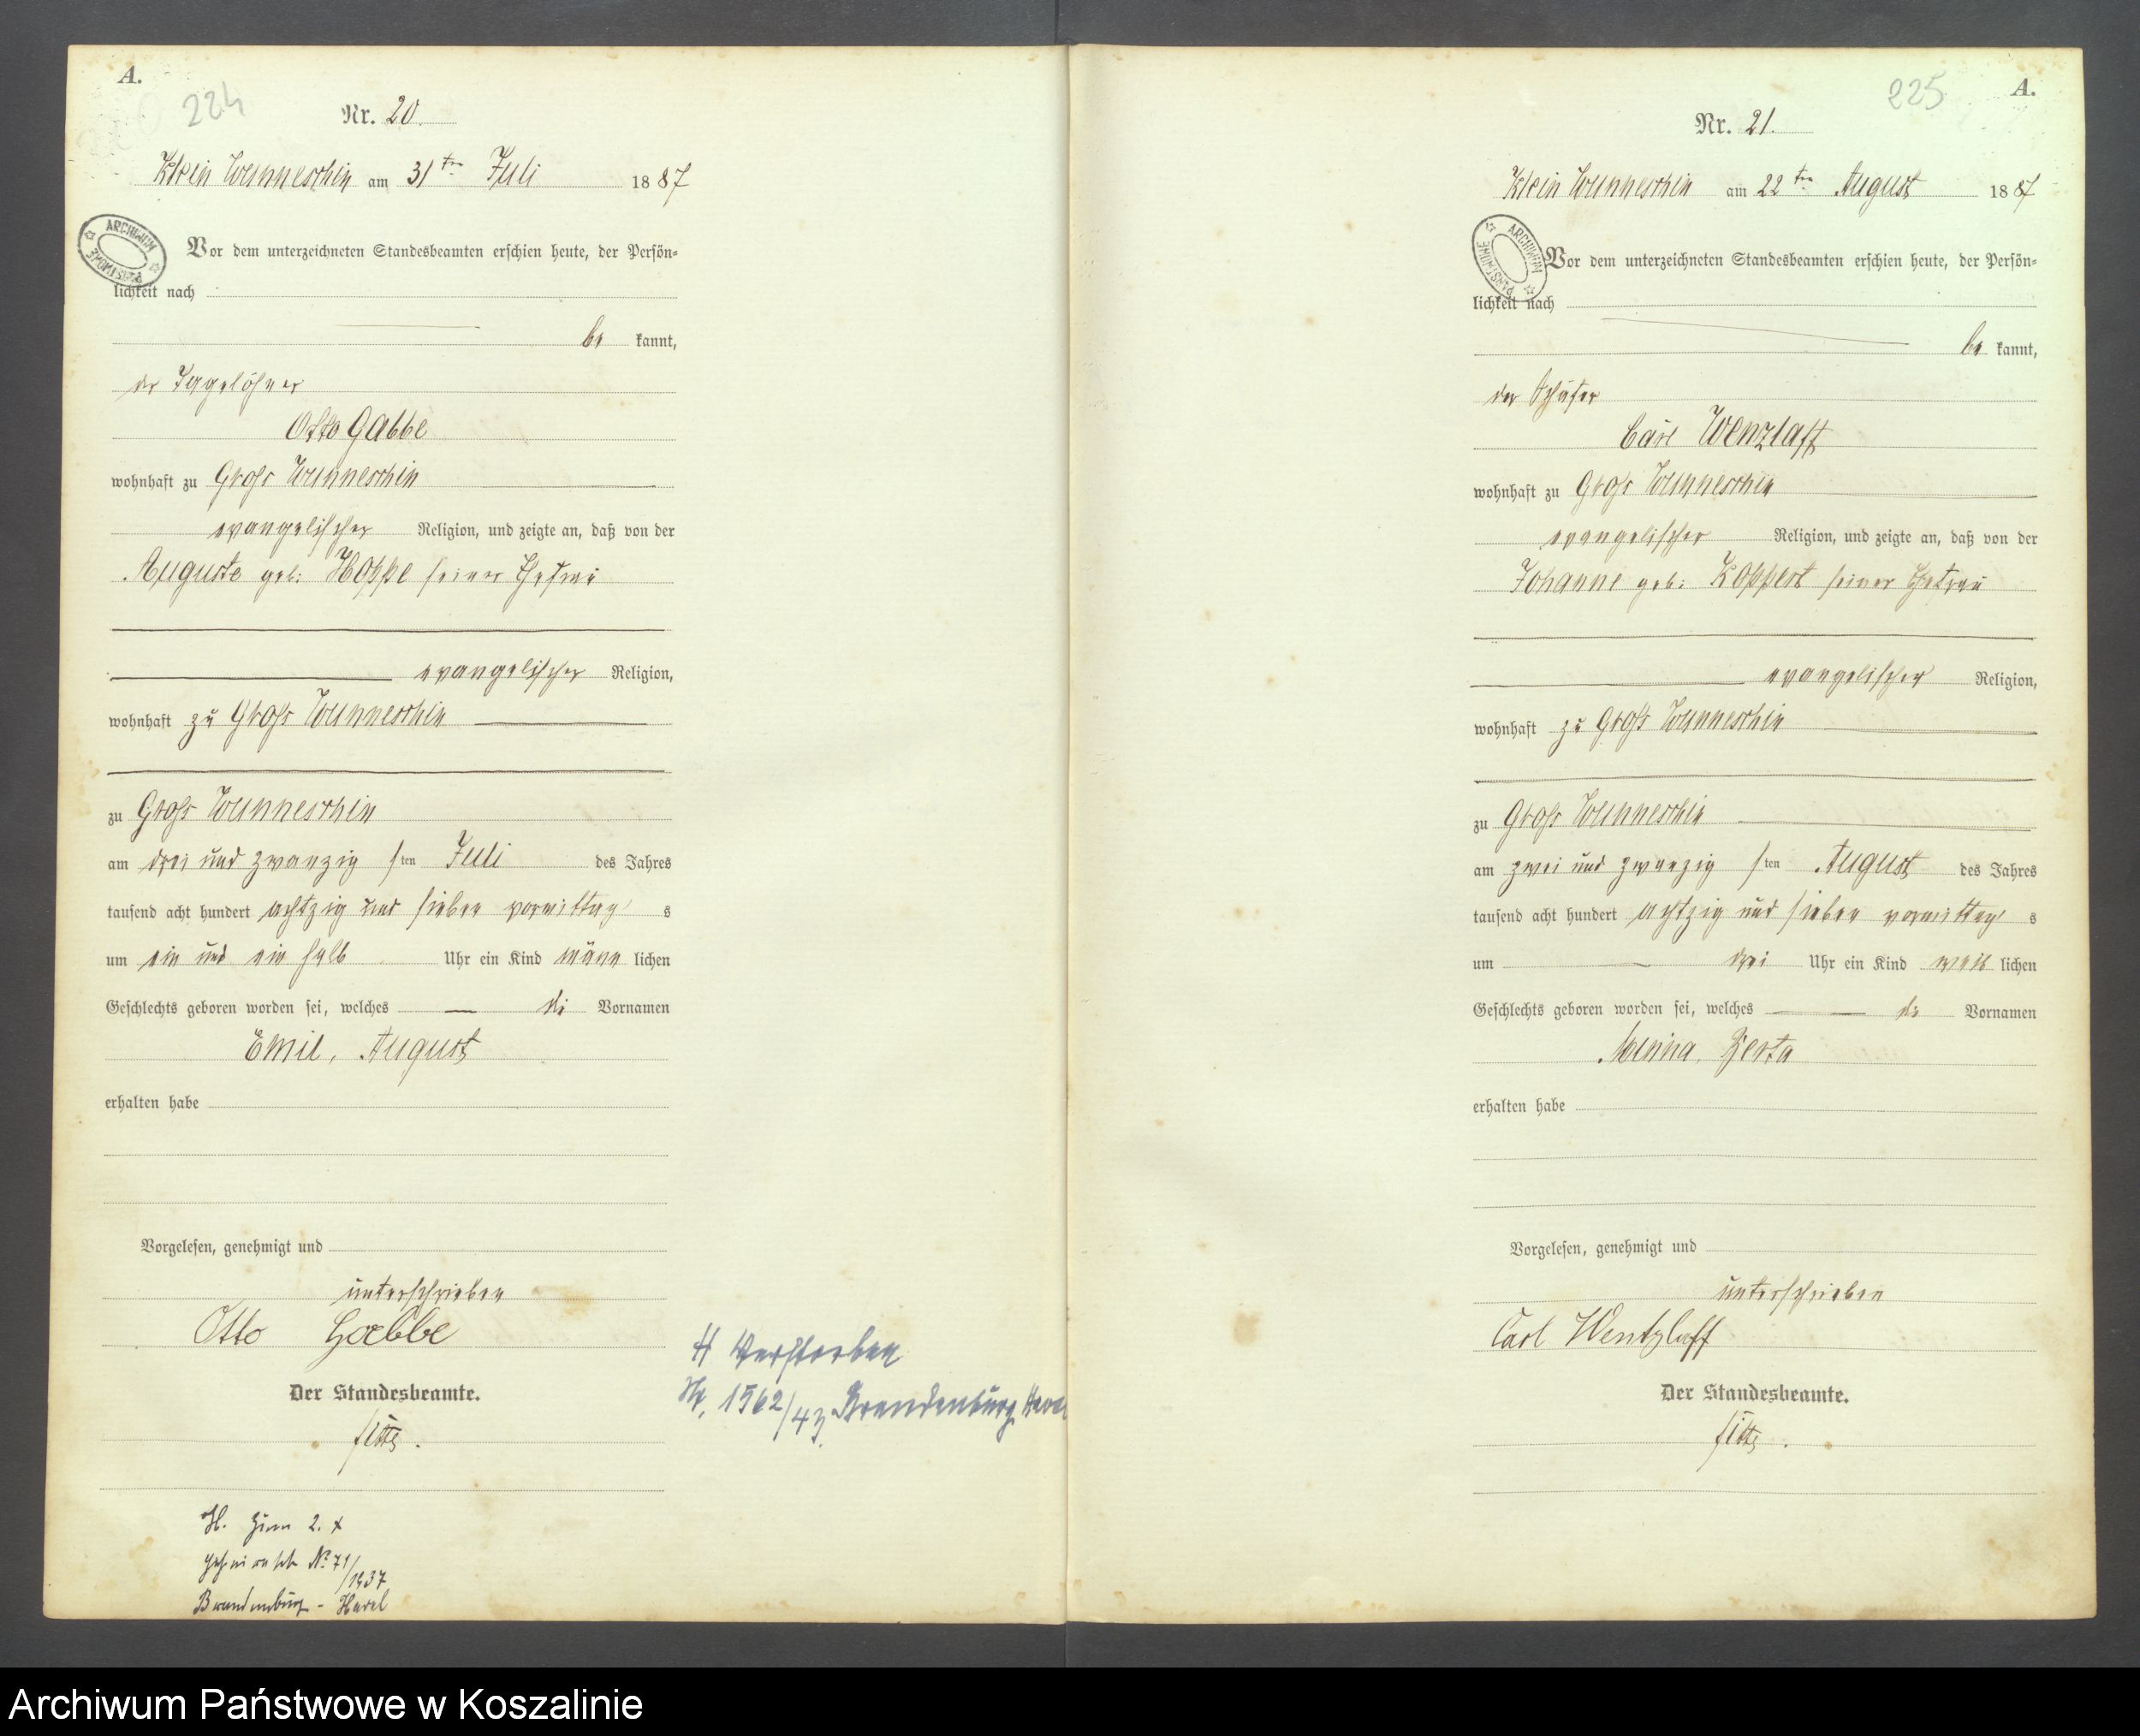 A.
224
Nr. 20.
Klein Wunneschin am 31ten Juli 1887
ARCHIWUM PAŃSTWOWE
Vor dem unterzeichneten Standesbeamten erschien heute, der Persön-
lichkeit nach
be kannt,
der Tagelöhner
Otto Gabbe
wohnhaft zu Groß Wunneschin
evangelischer Religion, und zeigte an, daß von der
Auguste geb: Hoppe seiner Ehefrau
evangelischer Religion,
wohnhaft zu Groß Wunneschin
zu Groß Wunneschin
am drei und zwanzigsten Juli des Jahres
tausend acht hundert achtzig und sieben vormittags
um ein und ein halb Uhr ein Kind männlichen
Geschlechts geboren worden sei, welches die Vornamen
Emil, August
erhalten habe
Vorgelesen, genehmigt und
unterschrieben
Otto Gabbe
Der Standesbeamte.
H. zum 2. x
geheiratet No 71/1937
Brandenburg - Havel
H Verstorben
Nr. 1562/43. Brandenburg Havel
A.
225
Nr. 21.
Klein Wunneschin am 22ten August 1887
ARCHIWUM PAŃSTWOWE
Vor dem unterzeichneten Standesbeamten erschien heute, der Persön-
lichkeit nach
be kannt,
der Schäfer
Carl Wenzlaff
wohnhaft zu Groß Wunneschin
evangelischer Religion, und zeigte an, daß von der
Johanne geb: Koppert seiner Ehefrau
evangelischer Religion,
wohnhaft zu Groß Wunneschin
zu Groß Wunneschin
am zwei und zwanzigsten August des Jahres
tausend acht hundert achtzig und sieben vormittags
um drei Uhr ein Kind weiblichen
Geschlechts geboren worden sei, welches die Vornamen
Minna, Berta
erhalten habe
Vorgelesen, genehmigt und
unterschrieben
Carl Wentzlaff
Der Standesbeamte.
Archiwum Państwowe w Koszalinie